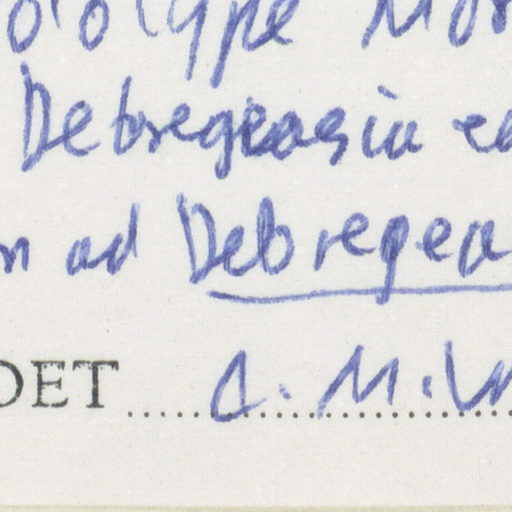 ototype
Debregeasia
ad Debregea
DET C. M. W